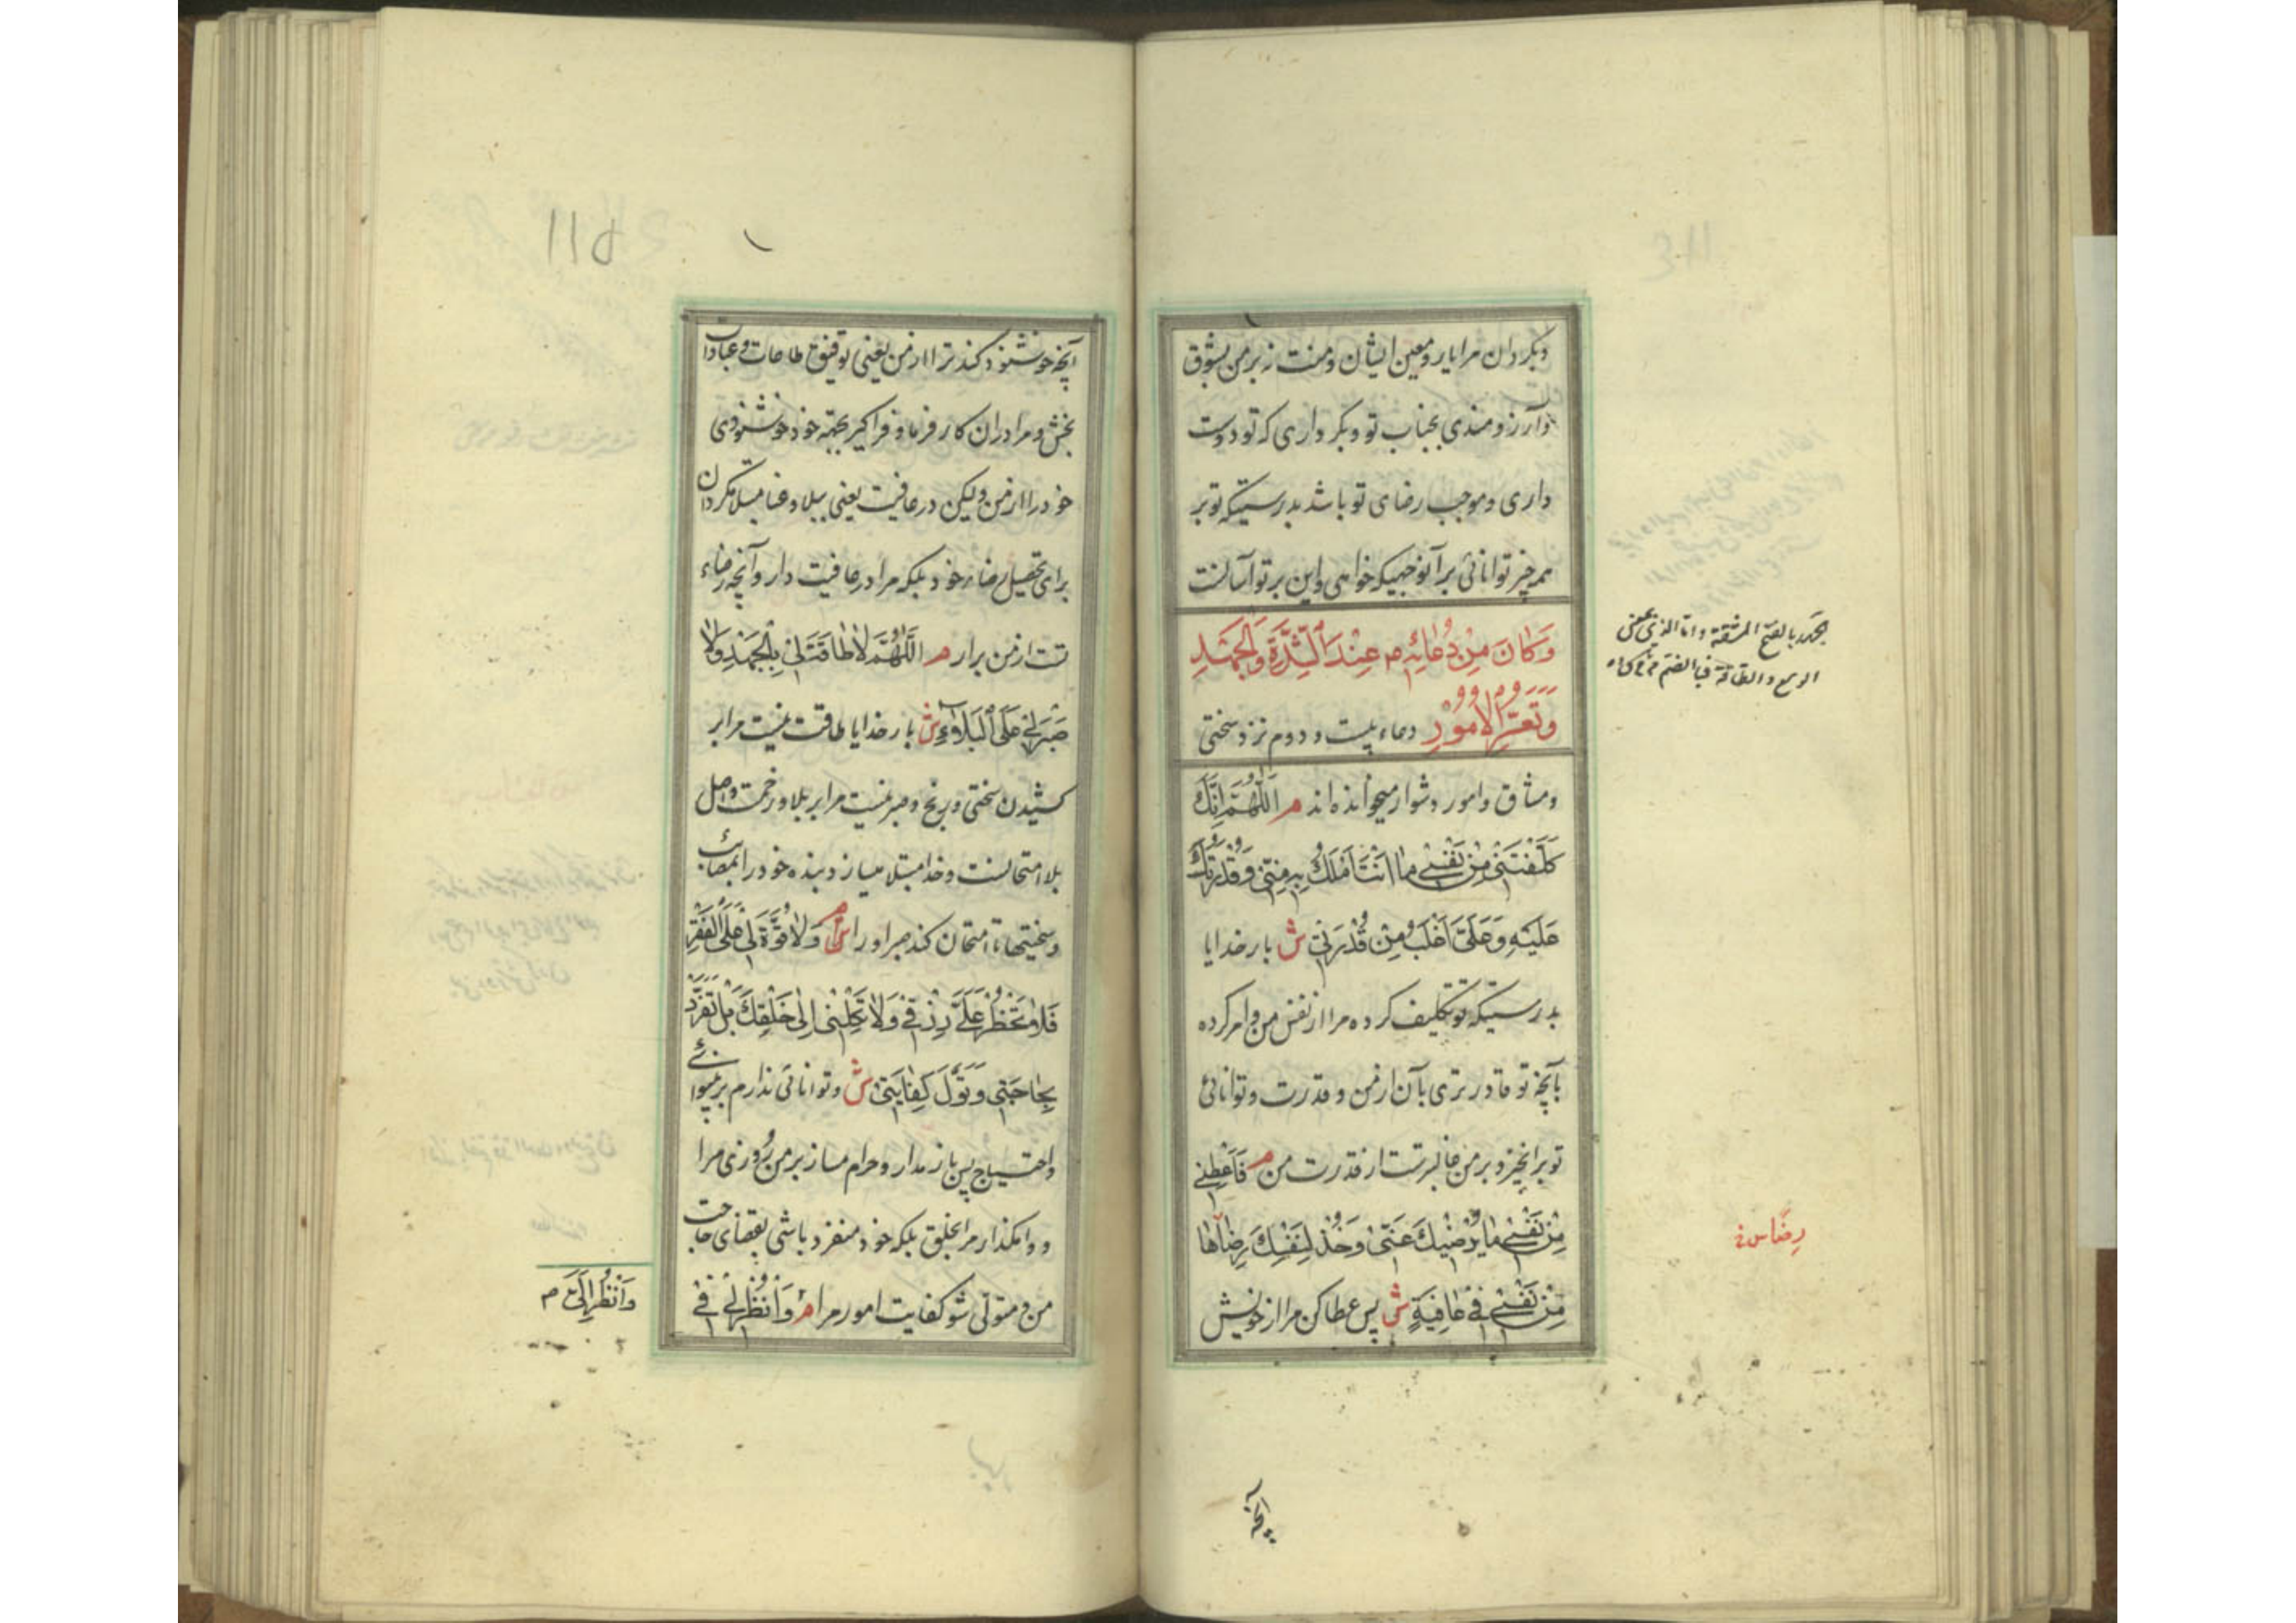 وبگردان مرا یار و معین ایشان و منت نه بر من بشوق
وآرزومندی بجناب تو وبکرداری که تو دوست
داری وموجب رضای تو باشد بدرستیکه تو بر
همه چیز توانائی برآنوجهیکه خواهی واین بر تو آسانست
وَكَانَ مِنْ دُعَائِهِ م عِنْدَ الشِّدَّةِ وَالْجَهْدِ
وَتَعَسُّرِ الْاُمُورِ دعاء بیست و دوم نزد سختی
ومشاق وامور دشوار میخوانده اند م اَللّٰهُمَّ اِنَّكَ
كَلَّفْتَنِي مِنْ نَفْسِي مٰا اَنْتَ اَمْلَكُ بِهِ مِنِّي وَقُدْرَتُكَ
عَلَيْهِ وَعَلَيَّ اَغْلَبُ مِنْ قُدْرَتِي ش بار خدایا
بدرستیکه تو تکلیف کرده مرا از نفس من و امر کرده
بآنچه تو قادر تری بآن از من و قدرت و توانائی
تو برانچیز و بر من غالبترست از قدرت من م فَاَعْطِنِي
مِنْ نَفْسِي مٰا يُرْضِيكَ عَنِّي وَخُذْ لِنَفْسِكَ رِضٰاهٰا
مِنْ نَفْسِي فِي عٰافِيَةٍ ش پس عطا کن مرا از خویش
الجهد بالفتح المشقة واما الذی بمعنی
الوسع والطاقة فبالضم
آنچه
آنچه خوشنود کند ترا از من یعنی توفیق طاعات و عبادات
بخش و مرا دران کار فرما و فراگیر بجهة خود خوشنودی
خود را از من ولیکن در عافیت یعنی ببلا و عنا مبتلا مگردان
برای تحصیل رضاء خود بلکه مرا در عافیت دار وآنچه رضاء
تست از من برآر م اَللّٰهُمَّ لاٰ طٰاقَةَ لِي بِالْجَهْدِ وَلاٰ
صَبْرَ لِي عَلَى الْبَلاٰءِ ش بار خدایا طاقت نیست مرا بر
کشیدن سختی و رنج و صبر نیست مرا بر بلا و زحمت و اصل
بلا امتحانست و خدا مبتلا میسازد بنده خود را بمصائب
وسختیها تا امتحان کند صبر او را م وَلاٰ قُوَّةَ لِي عَلَى الْفَقْرِ
فَلاٰ تَحْظُرْ عَلَيَّ رِزْقِي وَلاٰ تَكِلْنِي اِلٰى خَلْقِكَ بَلْ تَفَرَّدْ
بِحٰاجَتِي وَتَوَلَّ كِفٰايَتِي ش وتوانائی ندارم بر بینوائی
واحتیاج پس باز مدار و حرام مساز بر من روزی مرا
و وامگذار مرا بخلق بلکه خود منفرد باشی بقضای حاجت
من و متولی شو کفایت امور مرا م وَانْظُرْ لِي فِي
وَانْظُرْ اِلَيَّ م